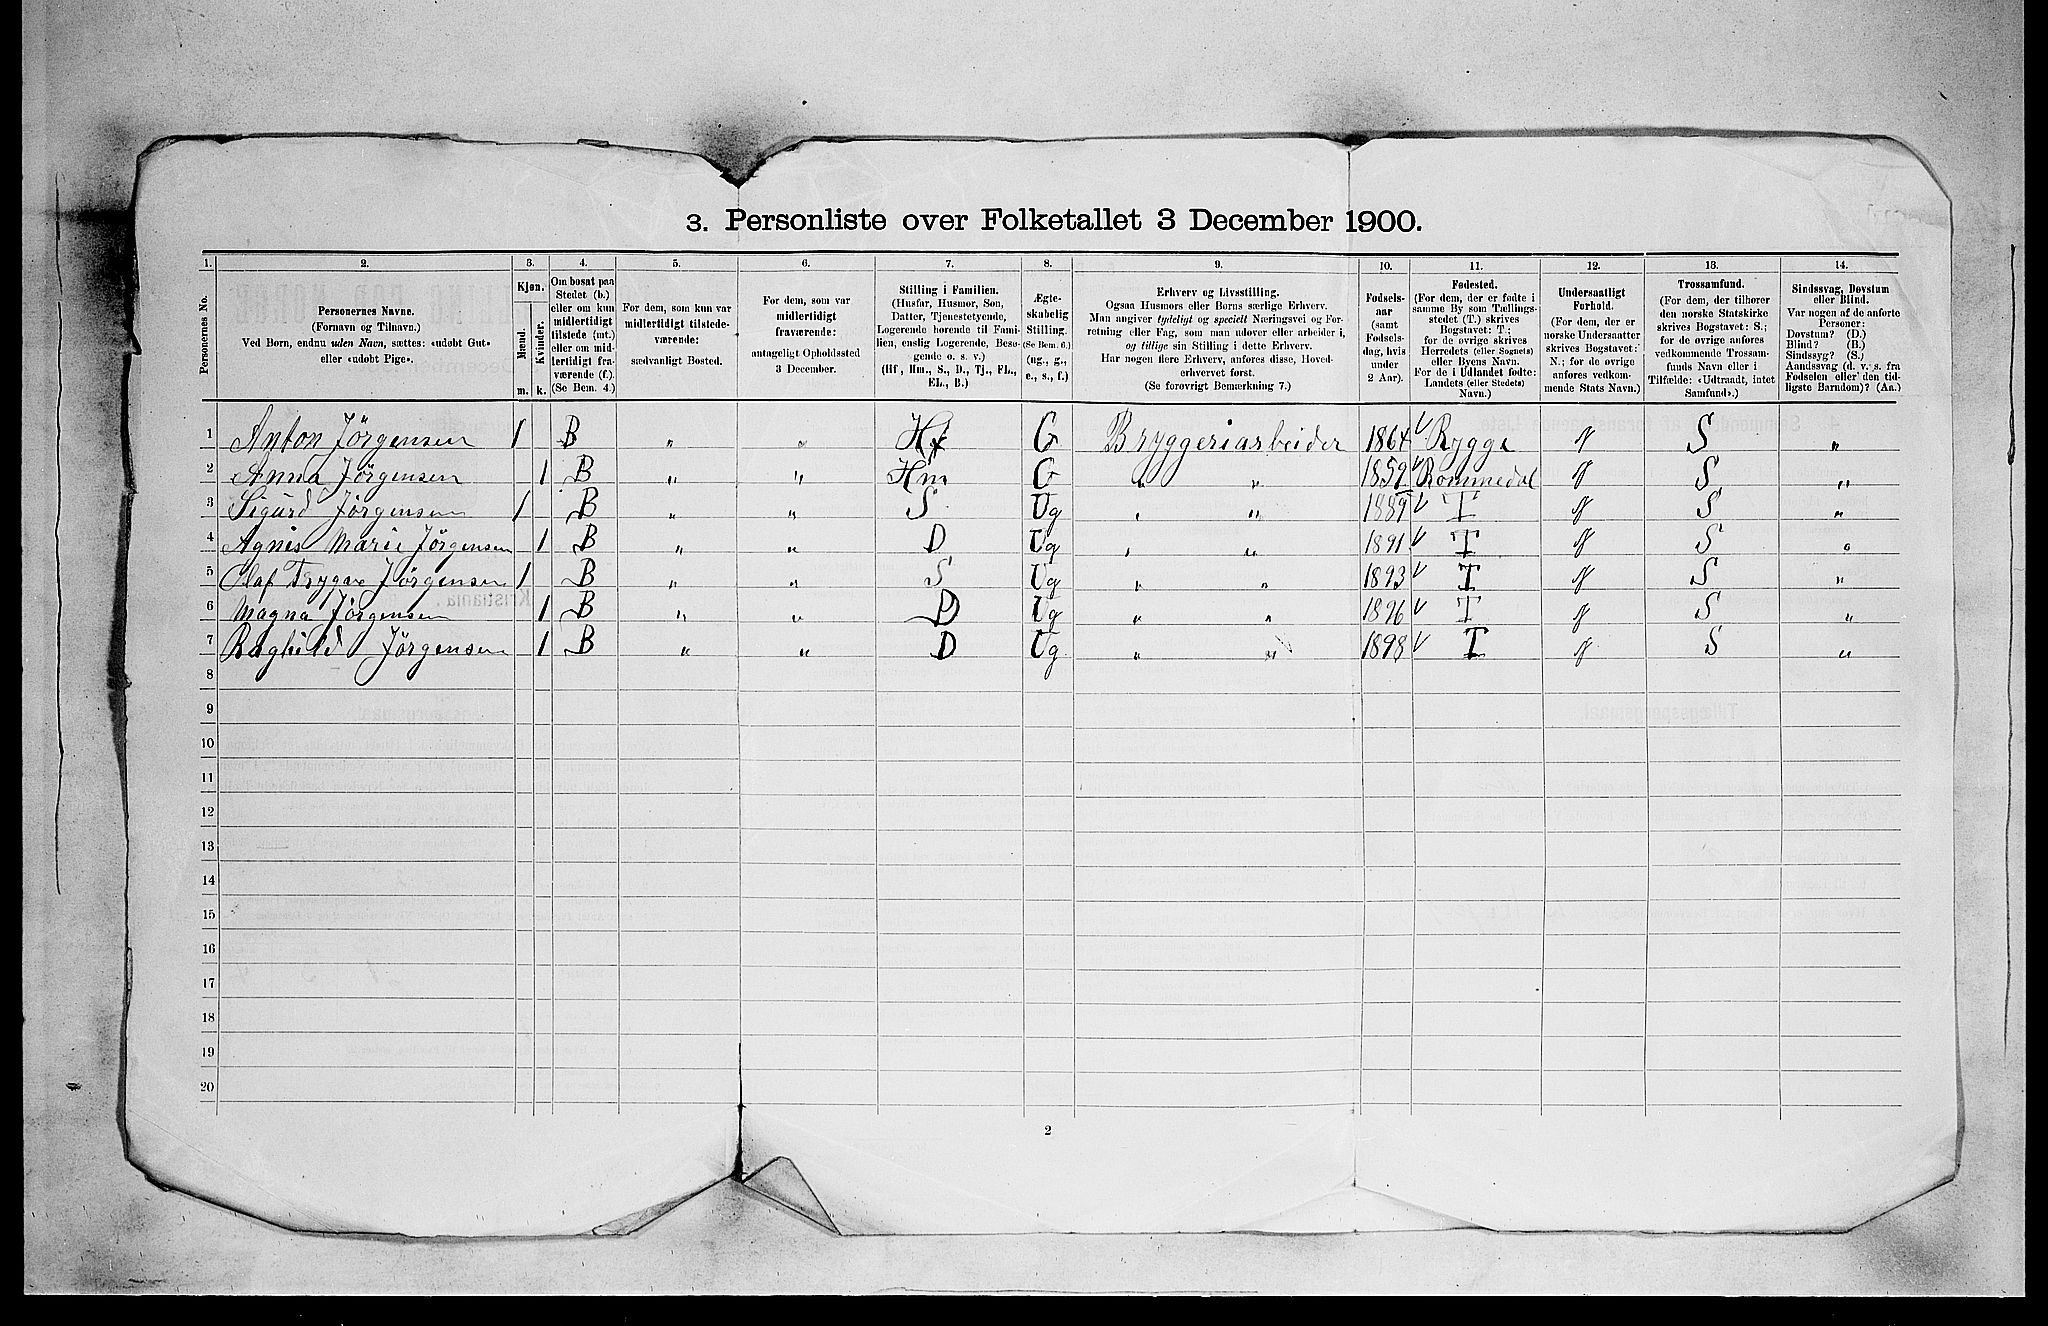 3. Personliste over Folketallet 3 December 1900.
1. 2. 3. 4. 5. 6. 7. 8. 9. 10. 11. 12. 13. 14.
Personernes No.
Personernes Navne.
(Fornavn og Tilnavn.)
Ved Børn, endnu uden Navn, sættes: «udøbt Gut»
eller «udøbt Pige».
Kjøn.
Mænd.
Kvinder.
m. k.
Om bosat paa
Stedet (b.)
eller om kun
midlertidigt
tilstede (mt.)
eller om mid-
lertidigt fra-
værende (f.).
(Se Bem. 4.)
For dem, som kun var
midlertidigt tilstede-
værende:
sædvanligt Bosted.
For dem, som var
midlertidigt
fraværende:
antageligt Opholdssted
3 December.
Stilling i Familien.
(Husfar, Husmor, Søn,
Datter, Tjenestetyende,
Logerende hørende til Fami-
lien, enslig Logerende, Besø-
gende o. s. v.)
(Hf., Hm., S., D., Tj., FL.,
EL., B.)
Ægte-
skabelig
Stilling.
(Se Bem. 6.)
(ug., g.,
e., s., f.)
Erhverv og Livsstilling.
Ogsaa Husmors eller Børns særlige Erhverv.
Man angiver tydeligt og specielt Næringsvei og For-
retning eller Fag, som man udøver eller arbeider i,
og tillige sin Stilling i dette Erhverv.
Har nogen flere Erhverv, anføres disse, Hoved-
erhvervet først.
(Se forøvrigt Bemærkning 7.)
Fødsels-
aar
(samt
Fødsels-
dag, hvis
under
2 Aar).
Fødested.
(For dem, der er fødte i
samme By som Tællings-
stedet (T.) skrives
Bogstavet: T.;
for de øvrige skrives
Herredets (eller Sognets)
eller Byens Navn.
For de i Udlandet fødte:
Landets (eller Stedets)
Navn.)
Undersaatligt
Forhold.
(For dem, der er
norske Undersaatter
skrives Bogstavet:
N.; for de øvrige
anføres vedkom-
mende Stats Navn.)
Trossamfund.
(For dem, der tilhører
den norske Statskirke
skrives Bogstavet: S.;
for de øvrige anføres
vedkommende Trossam-
funds Navn eller i
Tilfælde: «Udtraadt, intet
Samfund».)
Sindssvag, Døvstum
eller Blind.
Var nogen af de anførte
Personer:
Døvstum? (D.)
Blind? (B.)
Sindssyg? (S.)
Aandssvag (d. v. s. fra
Fødselen eller den tid-
ligste Barndom)? (Aa.)
1 Anton Jörgensen 1 B " " Hf G Bryggeriarbeider 1864 Rygge N S "
2 Anna Jörgensen 1 B " " Hm G " " 1859 Rommedal N S "
3 Sigurd Jörgensen 1 B " " S Ug " " 1889 T N S "
4 Agnis Marie Jörgensen 1 B " " D Ug " " 1891 T N S "
5 Olaf Trygve Jörgensen 1 B " " S Ug " " 1893 T N S "
6 Magna Jörgensen 1 B " " D Ug " " 1896 T N S "
7 Raghild Jörgensen 1 B " " D Ug " " 1898 T N S "
8
9
10
11
12
13
14
15
16
17
18
19
20
2